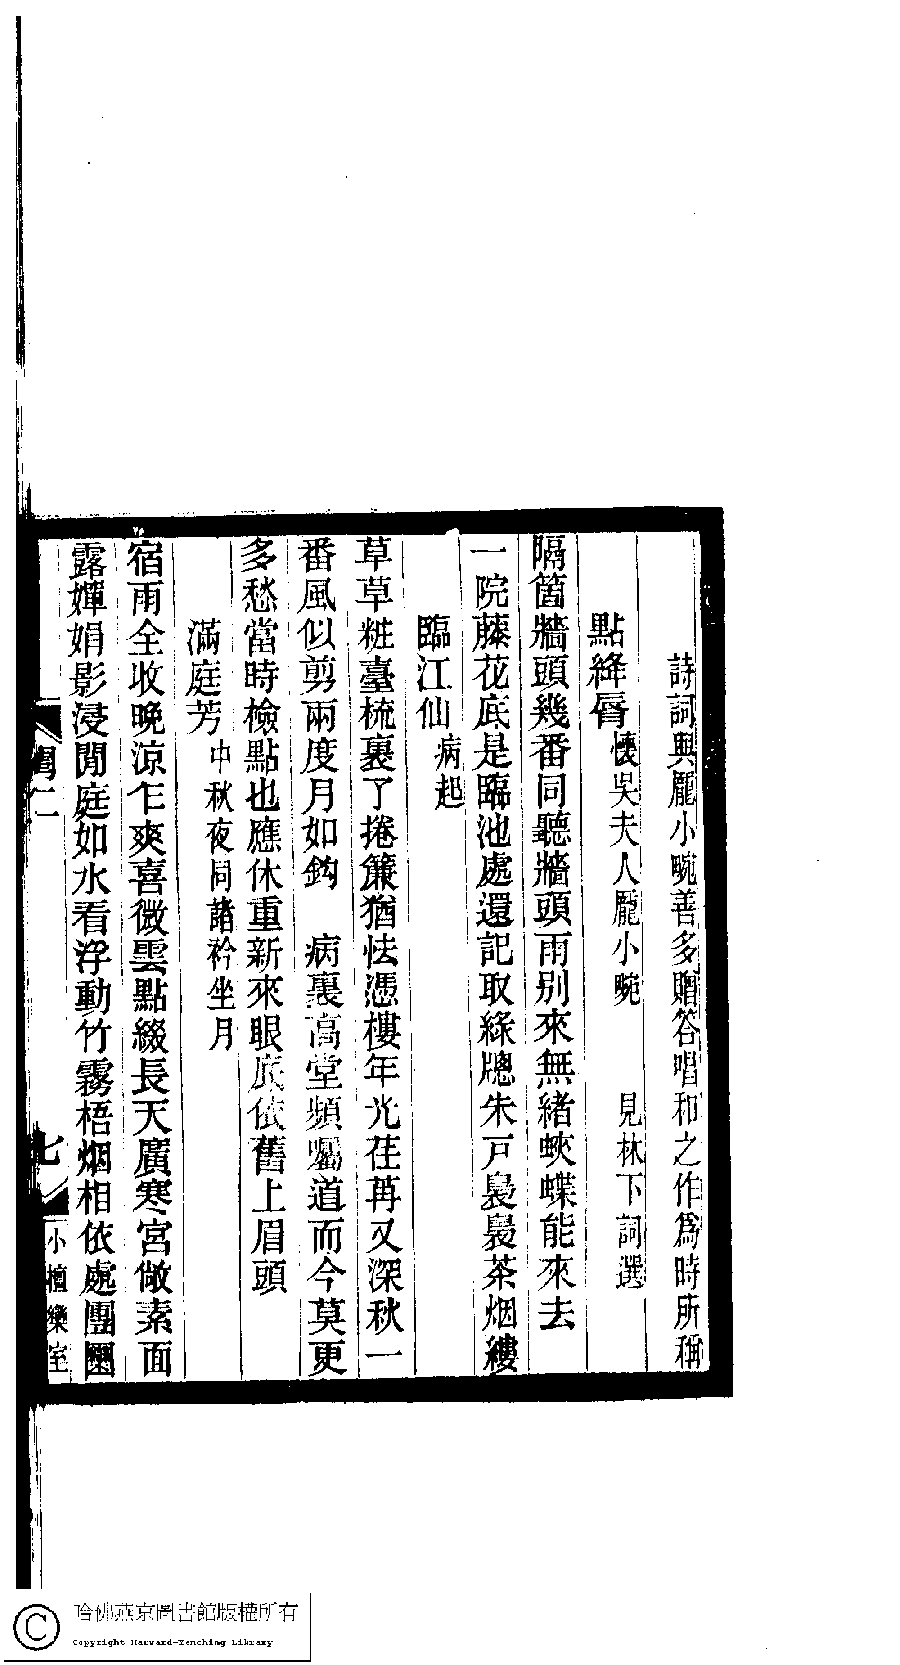 詩詞與龐小畹善多贈答唱和之作為時所稱
點絳脣 懷吳夫人龐小畹 見林下詞選
隔箇牆頭幾番同聽牆頭雨别來無緒蛺蝶能來去
一院藤花底是臨池處還記取綠牕朱戸裊裊茶烟縷
臨江仙 病起
草草粧臺梳裹了捲簾猶怯憑樓年光荏苒又深秋一
番風似剪兩度月如鈎 病裏高堂頻囑道而今莫更
多愁當時檢點也應休重新來眼底依舊上眉頭
滿庭芳 中秋夜同諸衿坐月
宿雨全收晚涼乍爽喜微雲點綴長天廣寒宮僘素面
露嬋娟影浸閒庭如水看浮動竹霧梧烟相依處團團
閨二
七
小檀欒室
哈佛燕京圖書館版權所有
Copyright Harvard-Yenching Library